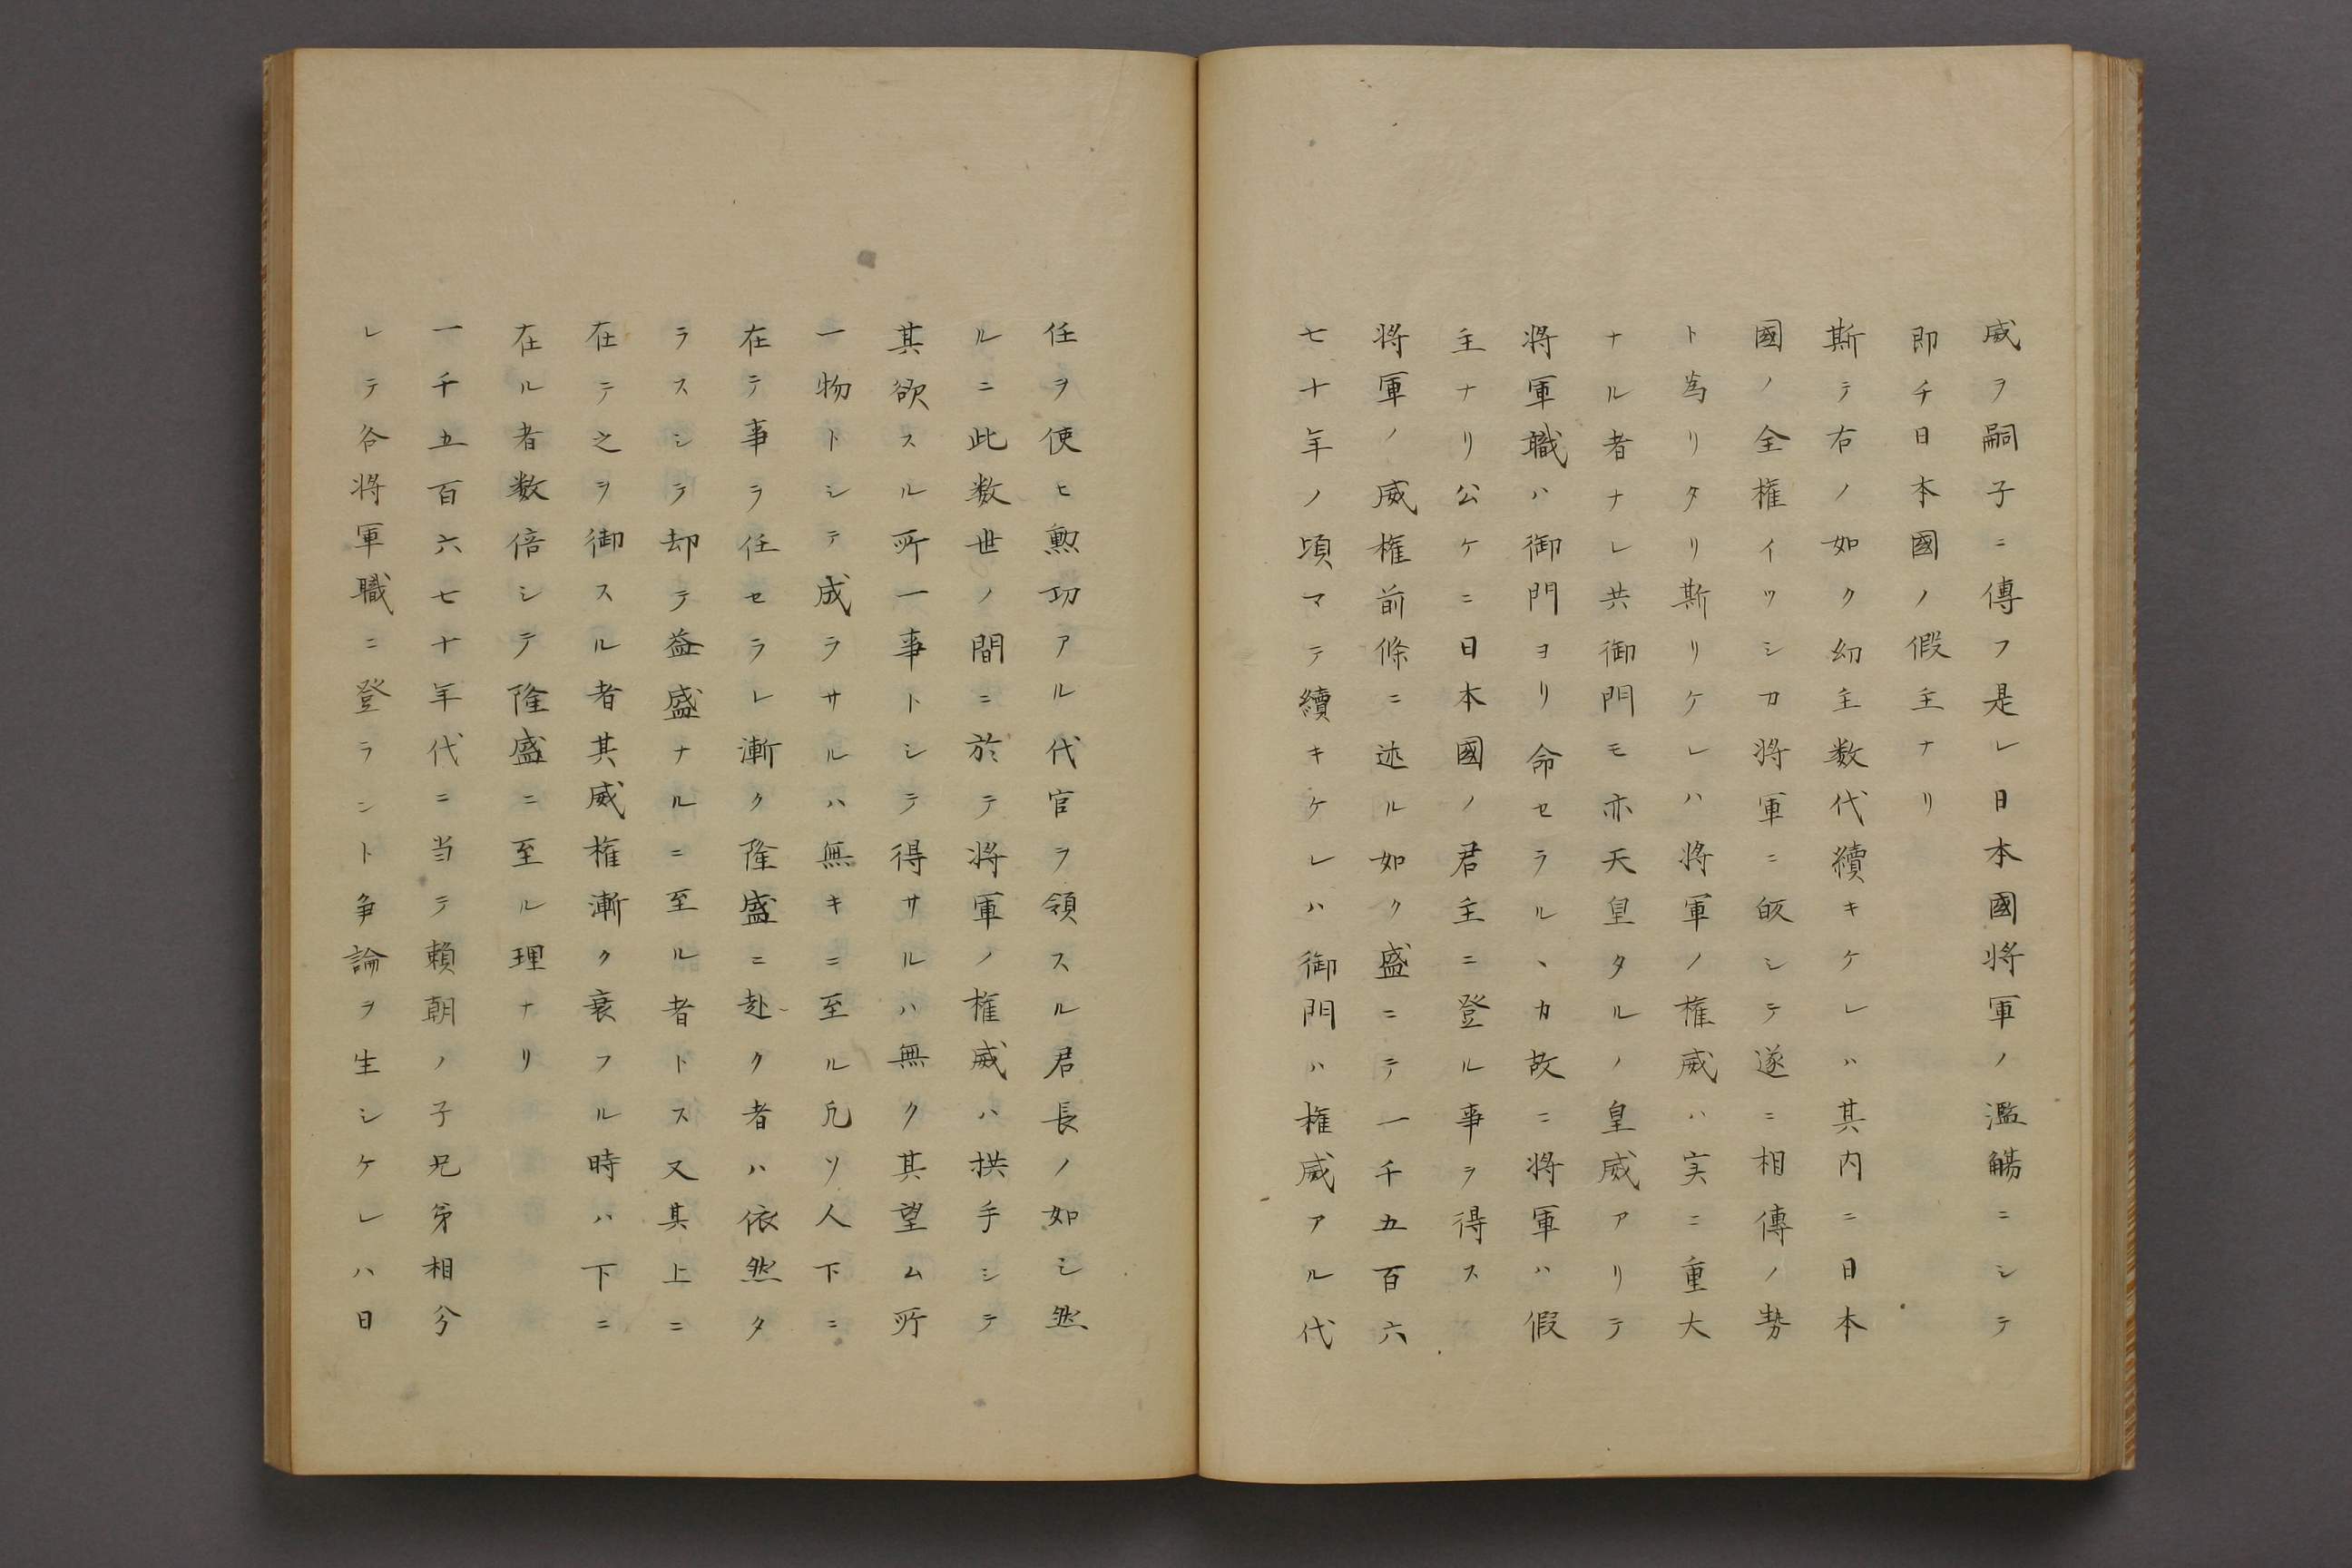 威ヲ嗣子ニ傳フ是レ日本國将軍ノ濫觴ニシテ
即チ日本國ノ假主ナリ
斯テ右ノ如ク幼主数代續キケレハ其内ニ日本
國ノ全権イツシカ将軍ニ皈シテ遂ニ相傳ノ勢
ト為リタリ斯リケレハ将軍ノ権威ハ実ニ重大
ナル者ナレ共御門モ亦天皇タルノ皇威アリテ
将軍職ハ御門ヨリ命セラルヽカ故ニ将軍ハ假
主ナリ公ケニ日本國ノ君主ニ登ル事ヲ得ス
将軍ノ威権前條ニ述ル如ク盛ニテ一千五百六
七十年ノ頃マテ續キケレハ御門ハ権威アル代
任ヲ使ヒ勲功アル代官ヲ領スル君長ノ如シ然
ルニ此数世ノ間ニ於テ将軍ノ権威ハ拱手シテ
其欲スル所一事トシテ得サルハ無ク其望ム所
一物トシテ成ラサルハ無キニ至ル凡ソ人下ニ
在テ事ヲ任セラレ漸ク隆盛ニ赴ク者ハ依然タ
ラスシテ却テ益盛ナルニ至ル者トス又其上ニ
在テ之ヲ御スル者其威権漸ク衰フル時ハ下ニ
在ル者数倍シテ隆盛ニ至ル理ナリ
一千五百六七十年代ニ当テ頼朝ノ子兄弟相分
レテ各将軍職ニ登ラント争論ヲ生シケレハ日